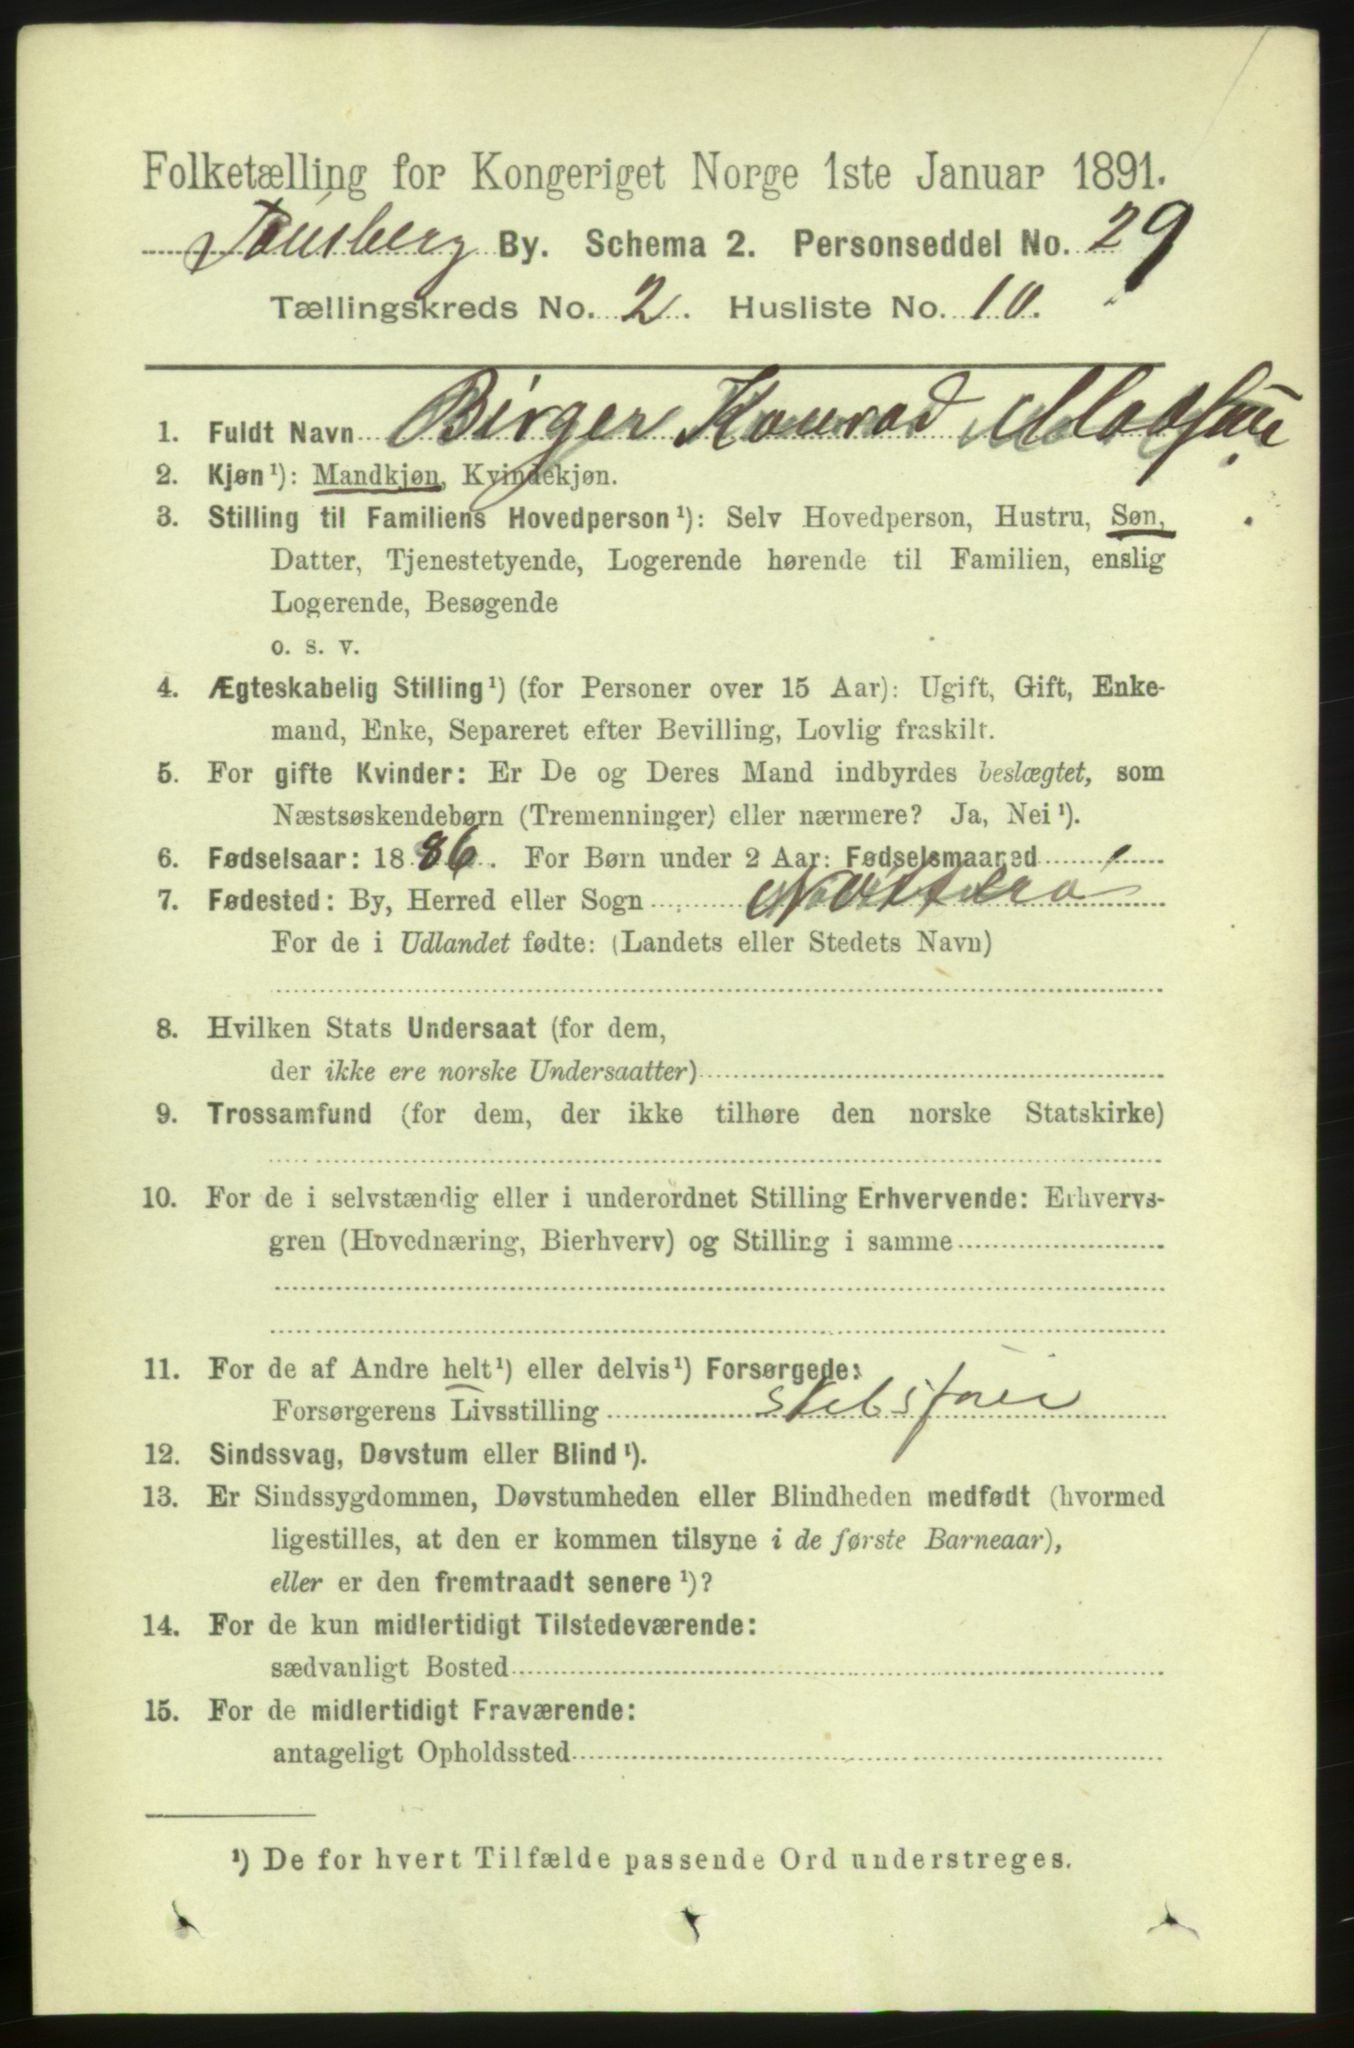 Folketælling for Kongeriget Norge 1ste Januar 1891.
Tønsberg By. Schema 2. Personseddel No. 29
Tællingskreds No. 2. Husliste No. 10.
1. Fuldt Navn Birger Konrad Madsen
2. Kjøn¹): Mandkjøn, Kvindekjøn.
3. Stilling til Familiens Hovedperson¹): Selv Hovedperson, Hustru, Søn,
Datter, Tjenestetyende, Logerende hørende til Familien, enslig
Logerende, Besøgende
o. s. v.
4. Ægteskabelig Stilling¹) (for Personer over 15 Aar): Ugift, Gift, Enke-
mand, Enke, Separeret efter Bevilling, Lovlig fraskilt.
5. For gifte Kvinder: Er De og Deres Mand indbyrdes beslægtet, som
Næstsøskendebørn (Tremenninger) eller nærmere? Ja, Nei¹).
6. Fødselsaar: 1886. For Børn under 2 Aar: Fødselsmaaned
7. Fødested: By, Herred eller Sogn Nøtterø
For de i Udlandet fødte: (Landets eller Stedets Navn)
8. Hvilken Stats Undersaat (for dem,
der ikke ere norske Undersaatter)
9. Trossamfund (for dem, der ikke tilhøre den norske Statskirke)
10. For de i selvstændig eller i underordnet Stilling Erhvervende: Erhvervs-
gren (Hovednæring, Bierhverv) og Stilling i samme
11. For de af Andre helt¹) eller delvis¹) Forsørgede:
Forsørgerens Livsstilling
12. Sindssvag, Døvstum eller Blind¹).
13. Er Sindssygdommen, Døvstumheden eller Blindheden medfødt (hvormed
ligestilles, at den er kommen tilsyne i de første Barneaar),
eller er den fremtraadt senere¹)?
14. For de kun midlertidigt Tilstedeværende:
sædvanligt Bosted
15. For de midlertidigt Fraværende:
antageligt Opholdssted
¹) De for hvert Tilfælde passende Ord understreges.